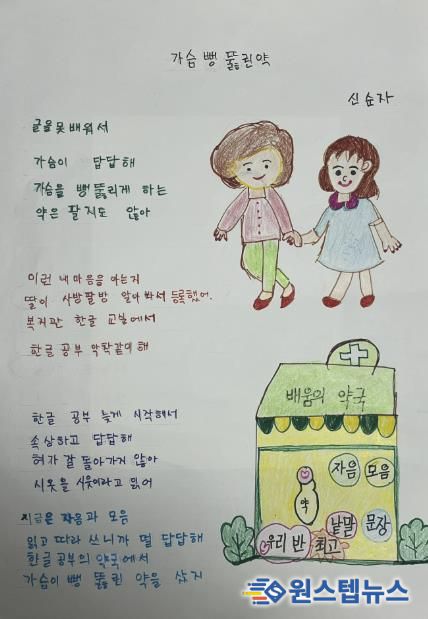 가슴 뻥 뚫린약
신순자
글을 못 배워서
가슴이 답답해
가슴을 뻥 뚫리게 하는
약은 팔지도 않아
이런 내마음을 아는지
딸이 사방팔방 알아봐서 등록했어.
복지관 한글 교실에서
한글 공부 악착같이 해
한글 공부 늦게 시작해서
속상하고 답답해
혀가 잘 돌아가지 않아
시옷을 시옷이라고 읽어
지금은 자음과 모음
읽고 따라 쓰니까 덜 답답해
한글 공부의 약국에서
가슴이 뻥 뚫린 약을 샀지
배움의 약국
자음 모음
약
낱말 문장
우리 반 최고
원스텝뉴스